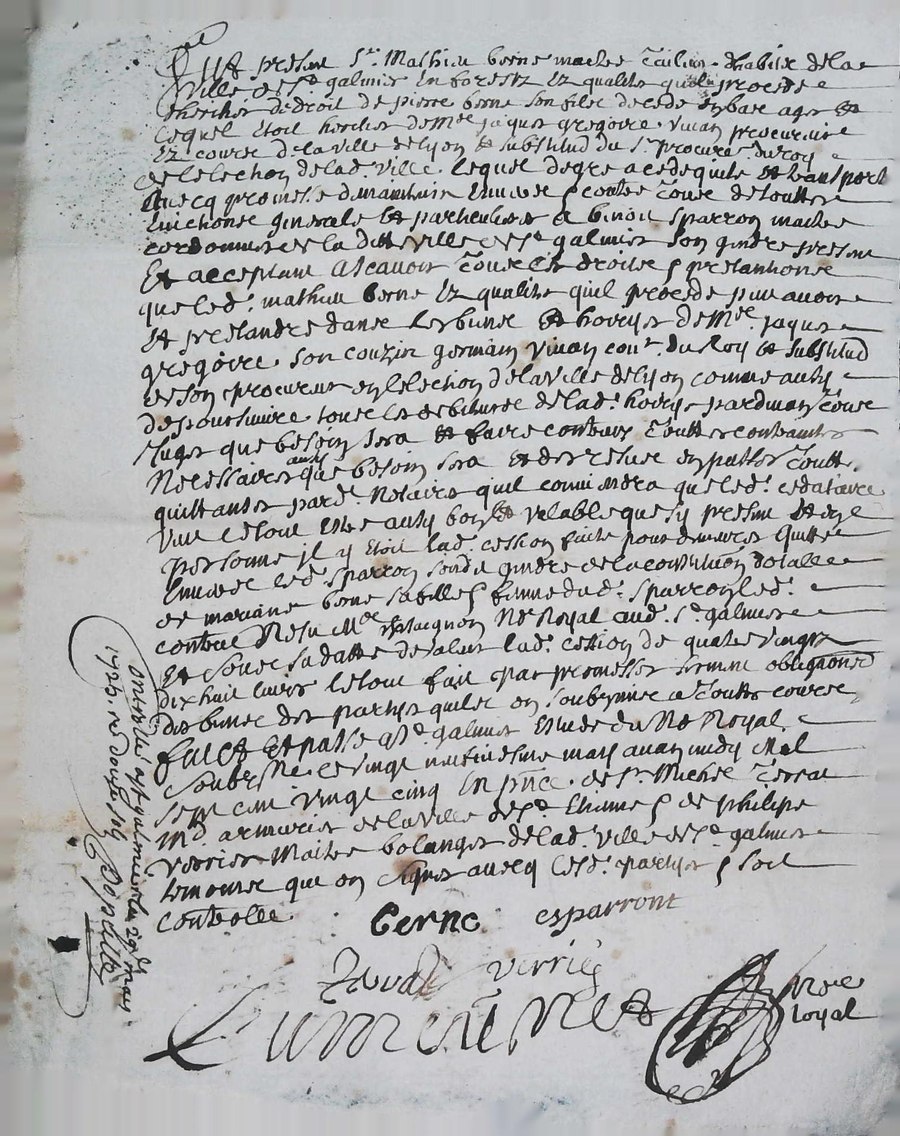 Fut presant Sr. Mathieu berne maitre habitant de la
ville de St galmier En forestz Ez qualites quil procede
heritier de droit de pierre berne son fils decede En bas age Et
Lequel Etoit heritier de Me jaques gregoire vivan procureur
Ez cours de la ville de lyon Et substitud du Sr procureur du roy
de lelection de lad. ville. Lequel de gre a cede quitte Et transporte
Avecq promesse de maintenir Envers & contre tous de touttes
Evictions generale Et particuliere A sparron maitre
cordonnier de la ditte ville de St galmier son gendre presan
Et acceptant Ascavoir tous les droits & pretantions
que led. mathieu berne Ez qualites quil procede peu avoir
Et pretandre dans les biens Et hoirye de Me jaques
gregoire son couzin germain vivan conr. du Roy Et substitud
de son procureur en lelection de la ville de lyon comme aussy
de poursuivre tous les debiteurs de lad. hoirye pardevan tous
Juges que besoin sera Et faire contre Eux touttes contraintes
Necessaires aussy que besoin sera Et den retirer en passer toutte
quittances par dt. Notaires quil conviendra que led. cedataire
le tout Estre aussy bon Et valable que sy presan Et de sa
personne Il y Etoit lad. cession faite pour demeurer quitte
Envers led. sparron son dit gendre de la constitution dotalle
de mariane berne sa fille & femme dud. sparron led.
contrat Resu Me Nre Royal aud. St. galmier
Et sous sa datte de valeur lad. cession de quatre vingts
dix huit livres le tout fait par promesses serment obligations
des biens des partyes quils en soubzmis a touttes cours
fait Et passe a St. galmier Estude du Nre Royal
soubzsne. le vingt neufviesme mars avan midy Mil
sept cent vingt cinq En pnce. de Sr. Michel
Md armurier de la ville de St. Etienne & de philipe
verrier Maitre bolanger de lad. ville de St. galmier
temoins qui on signes avecq lesd. partyes & soit
controlle
berne esparront
verrie
Nre
royal
Controlle a St galmier le 29e mars
1725. Re douze sols